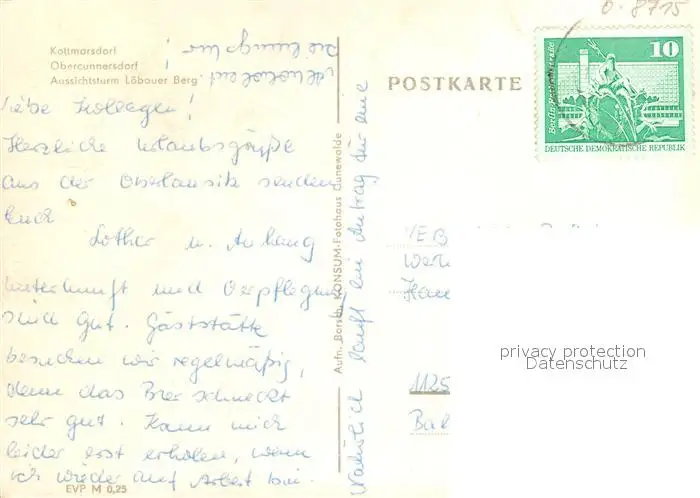 Kottmarsdorf
Obercunnersdorf
Aussichtsturm Löbauer Berg
POSTKARTE
10
DEUTSCHE DEMOKRATISCHE REPUBLIK
Liebe Kollegen!
Herzliche Urlaubsgrüße
aus der Oberlausitz senden
Euch
Lothar u. Anhang
Unterkunft und Verpflegung
sind gut. Gaststätte
besuchen wir regelmäßig,
denn das Bier schmeckt
sehr gut. Kann mich
leider erst erholen, wenn
ich wieder auf Arbeit bin.
Natürlich läuft ein Antrag für eine
EVP M 0,25
KONSUM-Fotohaus Cunewalde
VEB
1125
privacy protection
Datenschutz